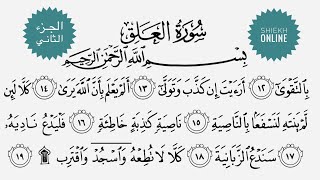 الجزء
الثاني
سُورَةُ الْعَلَقِ
SHIEKH
ONLINE
بِسْمِ اللَّهِ الرَّحْمَٰنِ الرَّحِيمِ
بِالتَّقْوَىٰ ١٢ أَرَءَيْتَ إِن كَذَّبَ وَتَوَلَّىٰ ١٣ أَلَمْ يَعْلَم بِأَنَّ اللَّهَ يَرَىٰ ١٤ كَلَّا لَئِن
لَّمْ يَنتَهِ لَنَسْفَعًا بِالنَّاصِيَةِ ١٥ نَاصِيَةٍ كَاذِبَةٍ خَاطِئَةٍ ١٦ فَلْيَدْعُ نَادِيَهُ
١٧ سَنَدْعُ الزَّبَانِيَةَ ١٨ كَلَّا لَا تُطِعْهُ وَاسْجُدْ وَاقْتَرِب ۩ ١٩